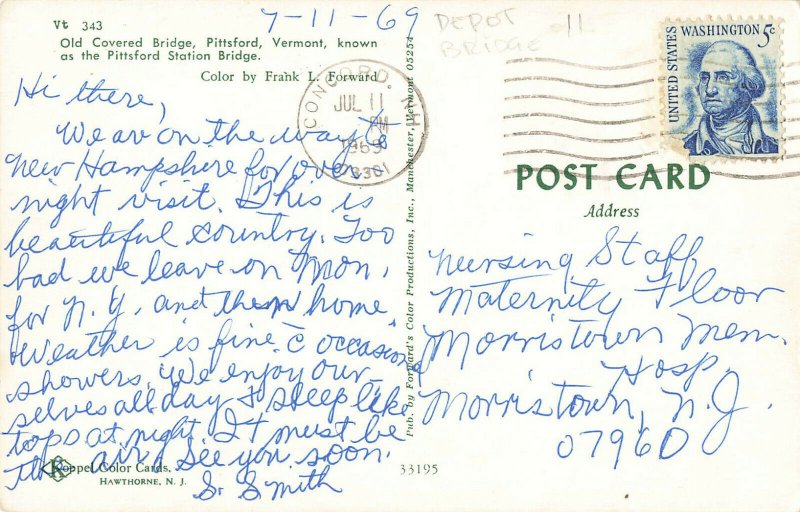 7-11-69
DEPOT
BRIDGE
11
Vt 343
Old Covered Bridge, Pittsford, Vermont, known
as the Pittsford Station Bridge.
Color by Frank L. Forward
Hi there,
We are on the way to
New Hampshire for over
night visit. This is
beautiful country. Too
bad we leave on Mon.
for N.Y. and then home
Weather is fine c̄ occasional
showers. We enjoy our-
selves all day & sleep like
tops at night. It must be
the air. See you soon.
S. Smith
Koppel Color Cards,
HAWTHORNE, N. J.
Pub. by Forward's Color Productions, Inc., Manchester, Vermont 05254
33195
CONCORD, N.H.
JUL 11
PM
1969
03301
UNITED STATES
WASHINGTON 5c
POST CARD
Address
Nursing Staff
Maternity Floor
Morristown Mem.
Hosp.
Morristown, N.J.
07960